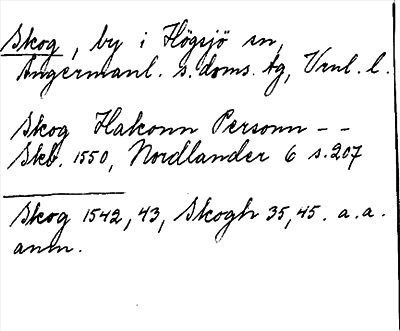 Skog, by i Högsjö sn,
Ångermanl. s. doms. tg, Vrnl. l.
Skog Hakonn Personn - -
Skb. 1550, Nordlander 6 s. 207
Skog 1542, 43, Skogh 35, 45. a. a.
anm.